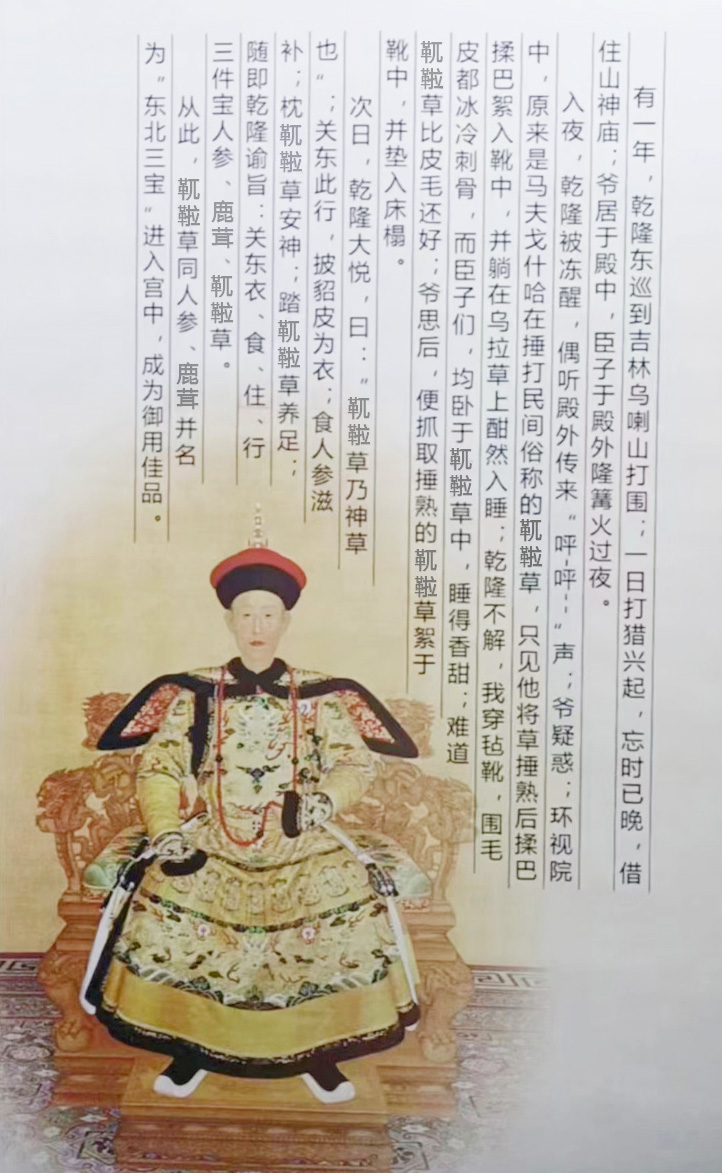 有一年，乾隆东巡到吉林乌喇山打围；一日打猎兴起，忘时已晚，借
住山神庙；爷居于殿中，臣子于殿外隆篝火过夜。
入夜，乾隆被冻醒，偶听殿外传来“呯-呯--“声；爷疑惑；环视院
中，原来是马夫戈什哈在捶打民间俗称的靰鞡草，只见他将草捶熟后揉巴
揉巴絮入靴中，并躺在乌拉草上酣然入睡；乾隆不解，我穿毡靴，围毛
皮都冰冷刺骨，而臣子们，均卧于靰鞡草中，睡得香甜；难道
靰鞡草比皮毛还好；爷思后，便抓取捶熟的靰鞡草絮于
靴中，并垫入床榻。
次日，乾隆大悦，曰：“靰鞡草乃神草
也“；关东此行，披貂皮为衣；食人参滋
补；枕靰鞡草安神；踏靰鞡草养足；
随即乾隆谕旨：关东衣、食、住、行
三件宝人参、鹿茸、靰鞡草。
从此，靰鞡草同人参、鹿茸并名
为“东北三宝“进入宫中，成为御用佳品。